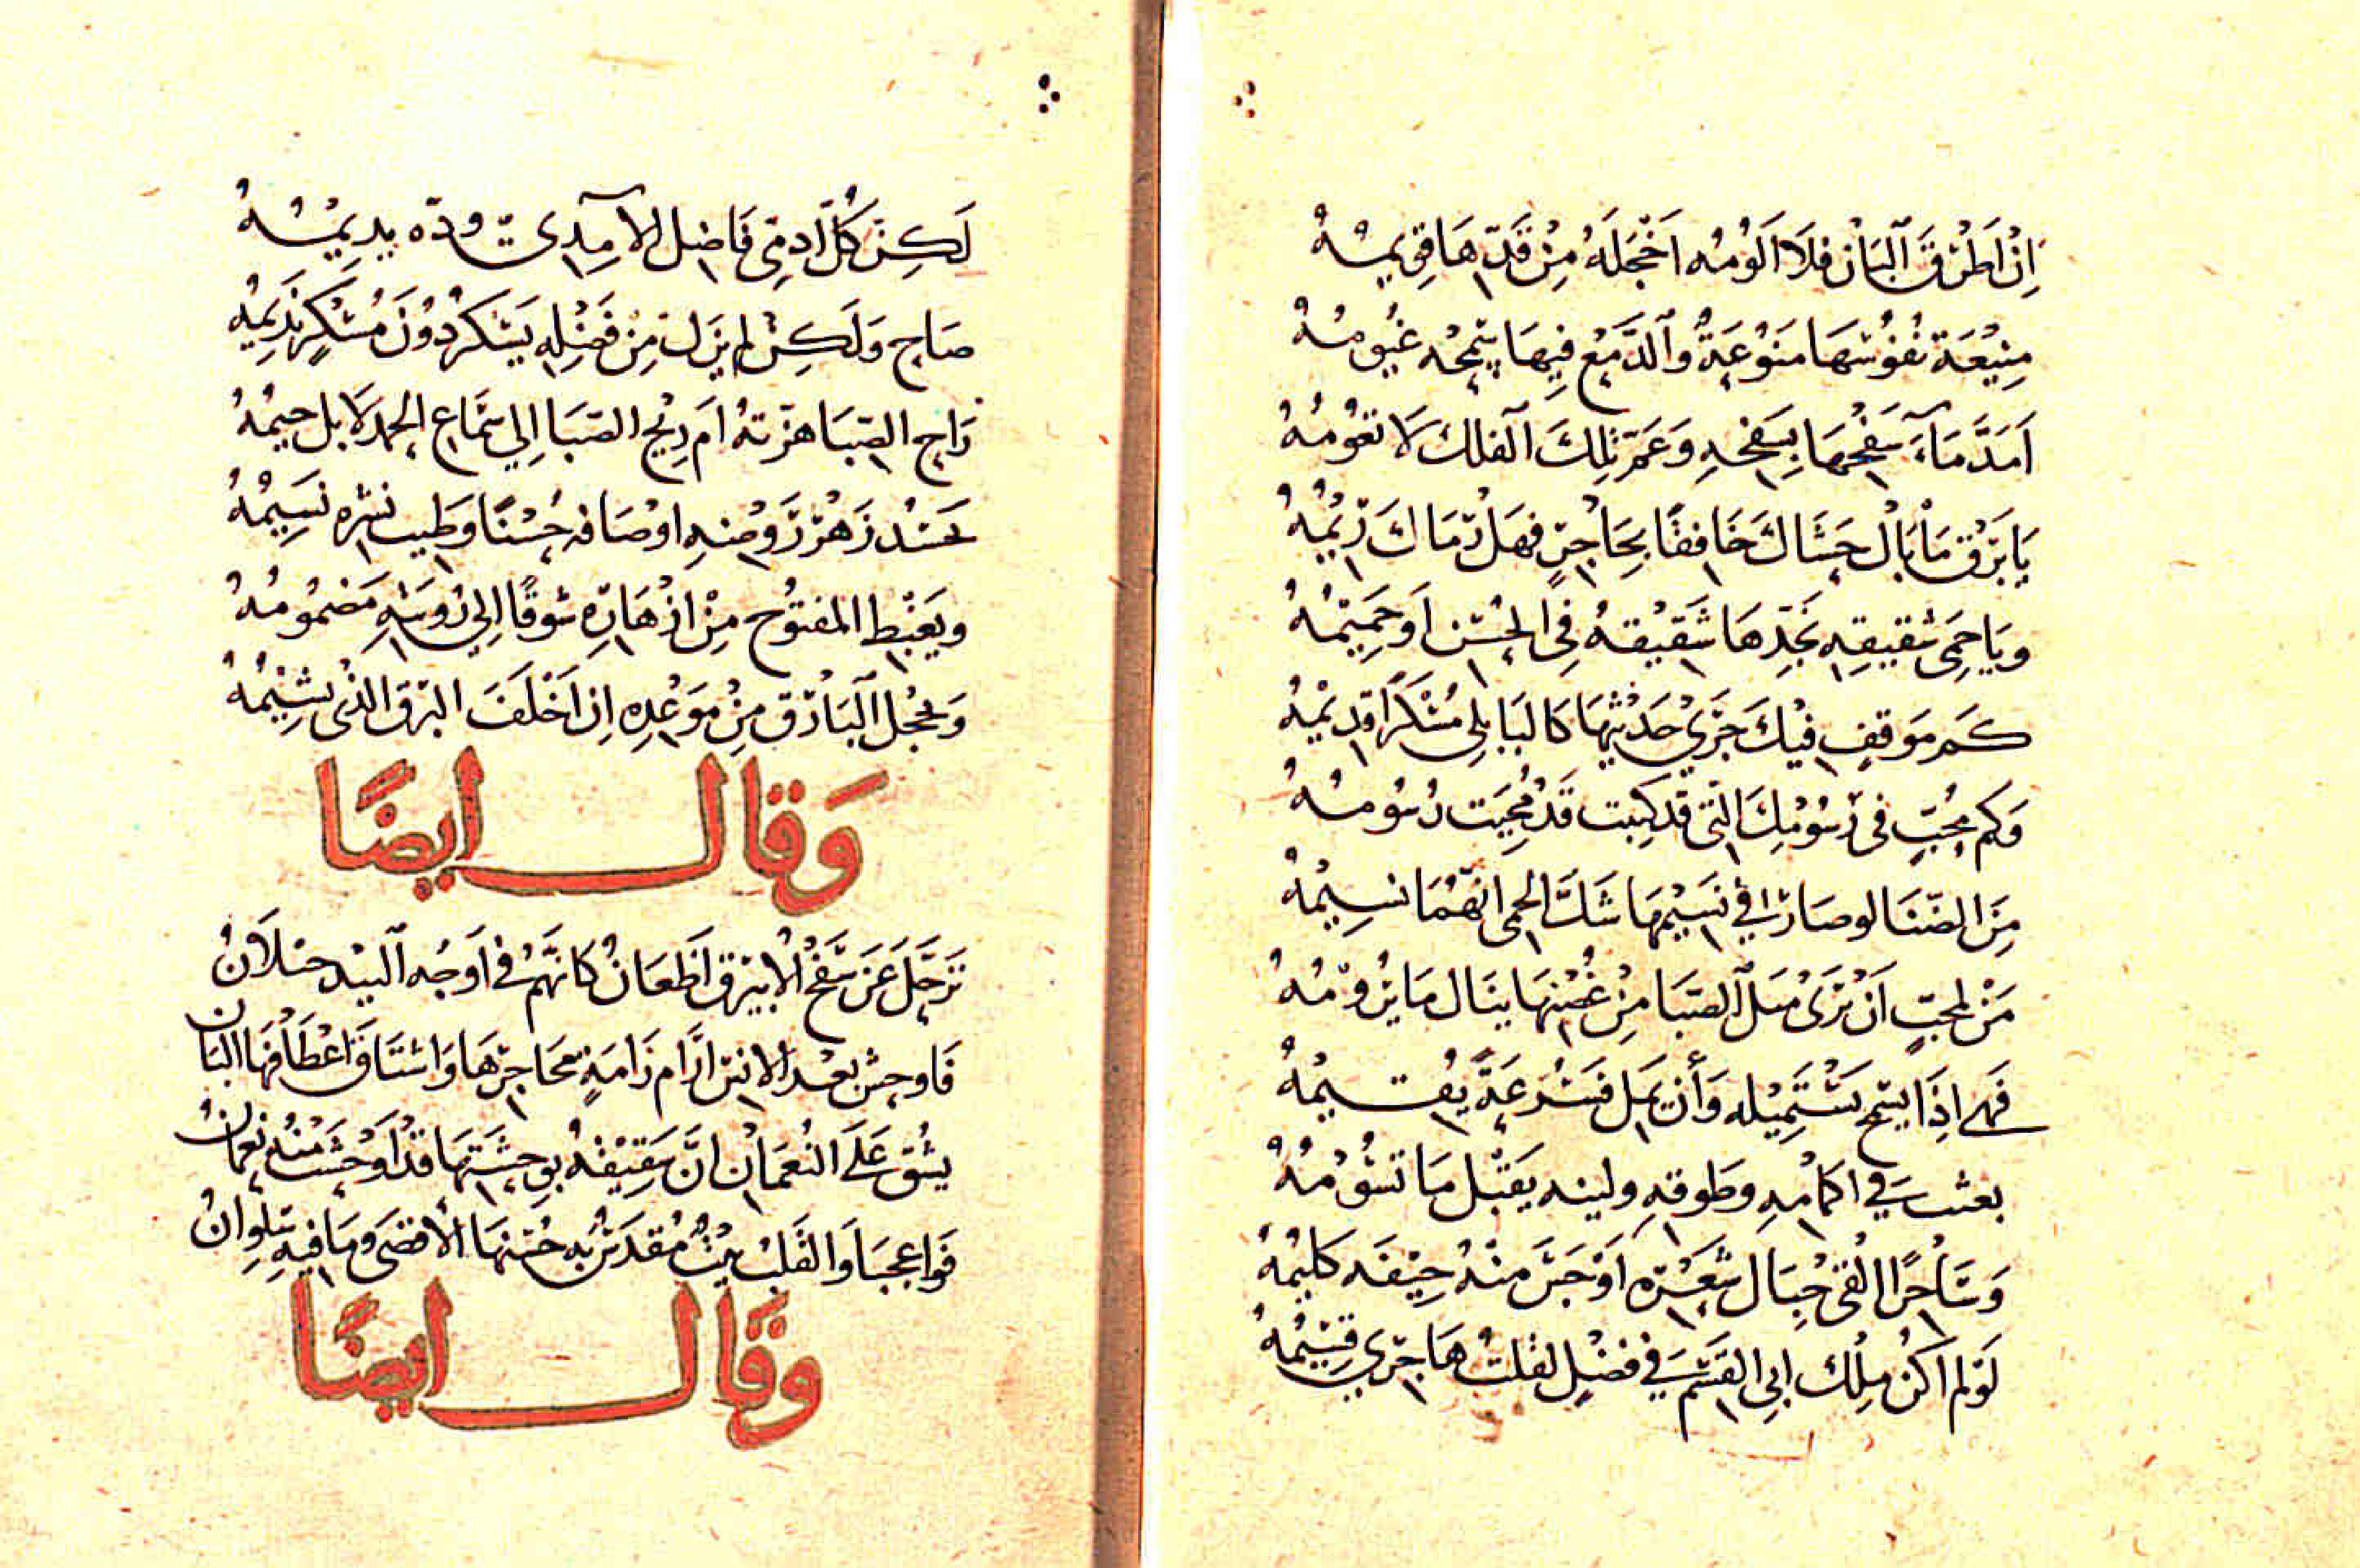 اِنْ اَطْرَقَ ٱلْبَانُ فلَا اَلُومُه اَخْجَلَهُ مِنْ قَدِّهَا قِويمُهُ
مِنِيْعَة نُفُوسُهَا مَنوُعَةٌ وٱلدَّمْعُ فِيهَا غُيُومُهُ
اَمَدَّ مَآءَ سَفْحِهَا بِسَفْحِهِ وَعَمَّ تِلكَ ٱلفلك لَا تعُومُهُ
يَا بَرْقُ مَا بَالُ حَشَاكَ خَافِقًا بِحَاجِرٍ فهَل رَمَاكَ رِيْمُهُ
ويَا حِمَى شقيقِه بخَدِّهَا شَقِيْقهُ فِى الحُسْن اَو حَمِيْمُهُ
كَم مَوقفٍ فيْكَ جَرَى حَدِيْثُهَا كَالبَابلِى مُسْكرًا قدِيْمُهُ
وَكم مُحِبٍّ فى رُسُوْمُكَ الَّتى قد كتبت قَدْ مُحِيَت رُسُومُهُ
مِنَ الضّنَا لو صَارَ فِي نَسِيْمِهَا شَكَّ الحِمى انهُمَا نسِيْمُهُ
مَنْ لمحبٍّ اَنْ يَرَى مَيل ٱلصَّبَا مِنْ غُصْنِهَا ينَال مَا يَرُوْمُهُ
فَهى اِذَا تستَمِيْله وَأن يَمِل يُقيمُهُ
فِي اكمامِهِ وطَوقهِ ولينه يَقبْل مَا تسُوْمُهُ
وَسَاحرًا اَلْقَى حِبَال شَعْرِه اَوْجَسَ منْهُ خِيْفَه كَليمُهُ
لَو لم اكنُ مِلْك ابى القسَم فِي فضْلٍ لقلتُ هَاجرِي قسِيْمُهُ
لَكِنَّ كُلَّ ادمِى فَاضِل الآمِدِىّ ودّه يدِيمُهُ
صَاحٍ وَلَكِنْ لم يَزَل مِنْ فَضْلِهِ يَسْكَرُ دُونَ مُسْكِرٍ نَدِيمُهُ
رَاحُ الصِّبَا هزّتهُ اَم رِيْحُ الصَّبَا اِلي سَمَاعِ الحمد لَا بل خِيمُهُ
يَحسُد زَهْرُ رَوْضِهِ اوْصَافه حُسْنًا وَطِيب نشره نَسِيْمُهُ
ويَغْبِط المفتوُح مِنْ ازْهَارِهِ شوقًا اِلي رُوسَهِ مَضمُومُهُ
وَيخْجُل ٱلبَارق مِنْ مَوْعْدِهِ اِن اَخْلَفَ البرق الذى يشِيْمُهُ
وَقال ايضًا
تَرَحَّلَ عَن سَفْحِ الْأبَيْرِقِ اَظعَانُ كَانَهُمُ فى اَوجُه ٱلبيْد خيلَانُ
فَاوحش بعْد الانس ارَام رَامَةٍ محَاجِرُهَا وَاشتَاقَ اَعْطَافَهَا البَان
يشُق عَلَى النُعمَانْ اَنَّ شَقِيْقهُ بوحشَتِهَا قدْ اَوْحَشَتْ مِنْهُ نعمَانُ
فَوَاعجبَا وَالقَلبُ بيْتٌ مُقدَسٌ به حُسْنهَا الأقصَى ومَا فيهِ سلْوَانُ
وقَال ايضًا